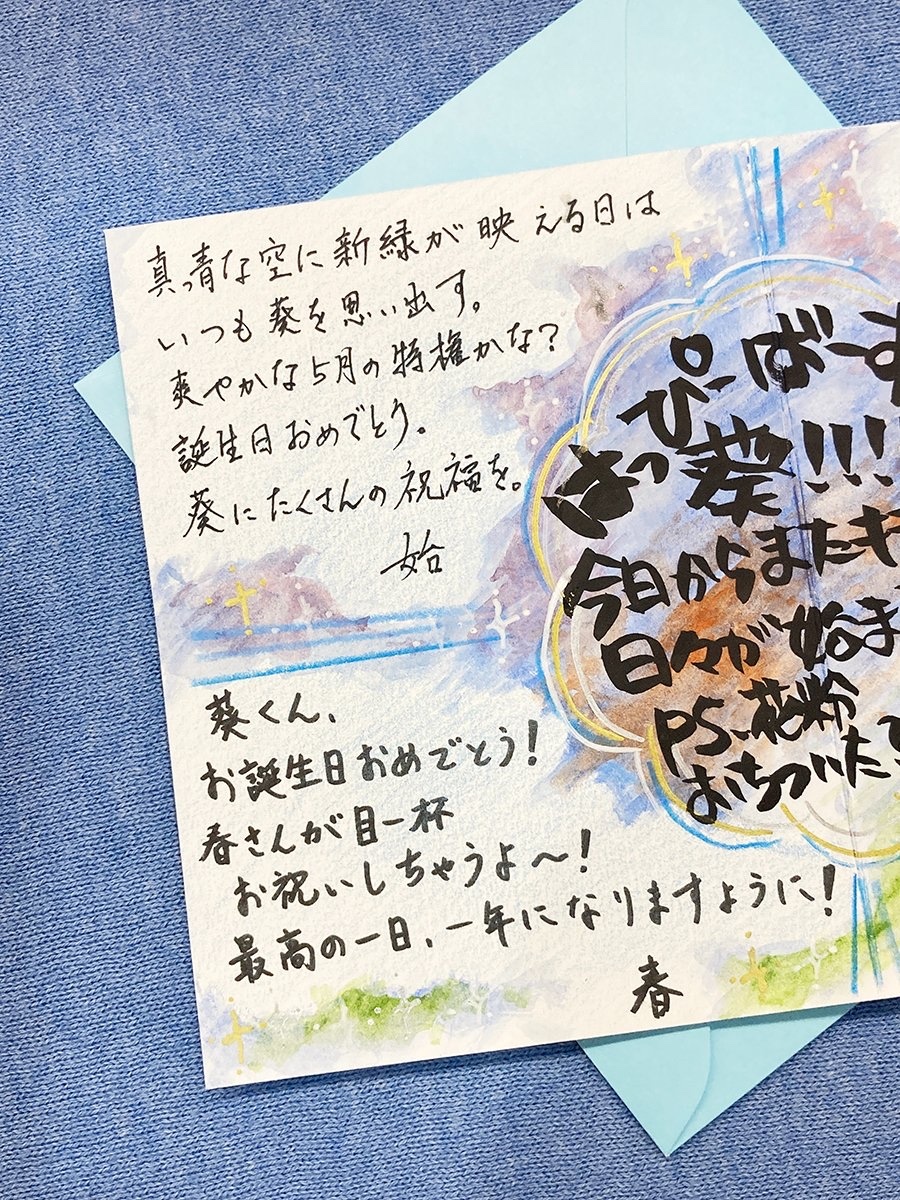 真っ青な空に新緑が映える日は
いつも葵を思い出す。
爽やかな5月の特権かな?
誕生日おめでとう。
葵にたくさんの祝福を。
始
葵くん、
お誕生日おめでとう!
春さんが目一杯
お祝いしちゃうよ〜!
最高の一日、一年になりますように!
春
はっぴーばーす
葵!!!
今日からまたキ
日々が始ま
PS、花粉
おちついた